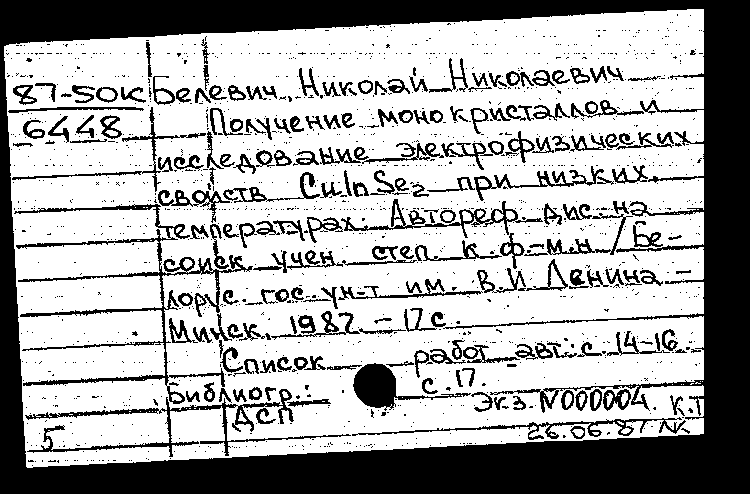 87-50К Белевич, Николай Николаевич
6448 Получение монокристаллов и
исследование электрофизических
свойств CuInSe₂ при низких
температурах: Автореф. дис. на
соиск. учен. степ. к.ф.-м.н / Бе-
лорус. гос. ун-т им. В.И Ленина -
Минск, 1987. - 17 с.
Список работ авт.: с. 14-16.
Библиогр.: с. 17.
ДСП Экз. N000004. К.Т
5 26.06.87 ЛК